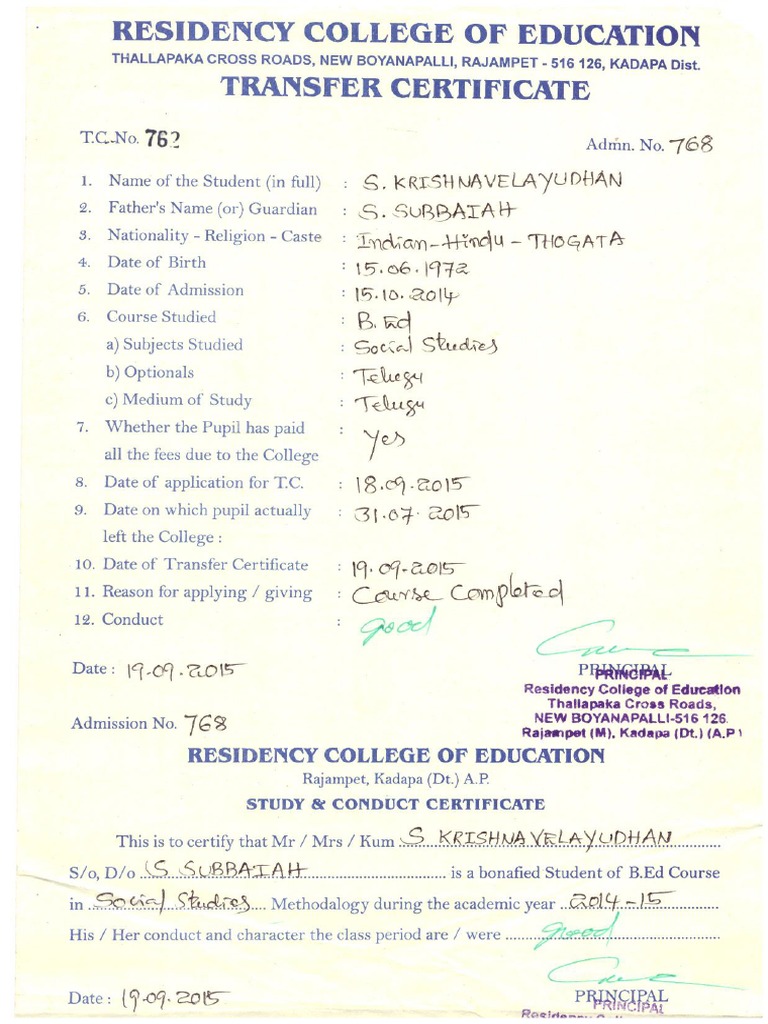 RESIDENCY COLLEGE OF EDUCATION
THALLAPAKA CROSS ROADS, NEW BOYANAPALLI, RAJAMPET - 516 126, KADAPA Dist.
TRANSFER CERTIFICATE
T.C.No. 762 Admn. No. 768
1. Name of the Student (in full) : S. KRISHNAVELAYUDHAN
2. Father's Name (or) Guardian : S. SUBBAIAH
3. Nationality - Religion - Caste : Indian-Hindu-THOGATA
4. Date of Birth : 15.06.1972
5. Date of Admission : 15.10.2014
6. Course Studied : B.Ed
a) Subjects Studied : Social Studies
b) Optionals : Telugu
c) Medium of Study : Telugu
7. Whether the Pupil has paid : Yes
all the fees due to the College
8. Date of application for T.C. : 18.09.2015
9. Date on which pupil actually : 31.07.2015
left the College :
10. Date of Transfer Certificate : 19.09-2015
11. Reason for applying / giving : Course Completed
12. Conduct : good
Date : 19.09.2015 PRINCIPAL
PRINCIPAL
Residency College of Education
Thallapaka Cross Roads,
NEW BOYANAPALLI-516 126.
Rajampet (M), Kadapa (Dt.) (A.P)
Admission No. 768
RESIDENCY COLLEGE OF EDUCATION
Rajampet, Kadapa (Dt.) A.P.
STUDY & CONDUCT CERTIFICATE
This is to certify that Mr / Mrs / Kum S KRISHNAVELAYUDHAN
S/o, D/o S. SUBBAIAH is a bonafied Student of B.Ed Course
in Social Studies Methodalogy during the academic year 2014-15
His / Her conduct and character the class period are / were good
Date : 19.09.2015 PRINCIPAL
PRINCIPAL